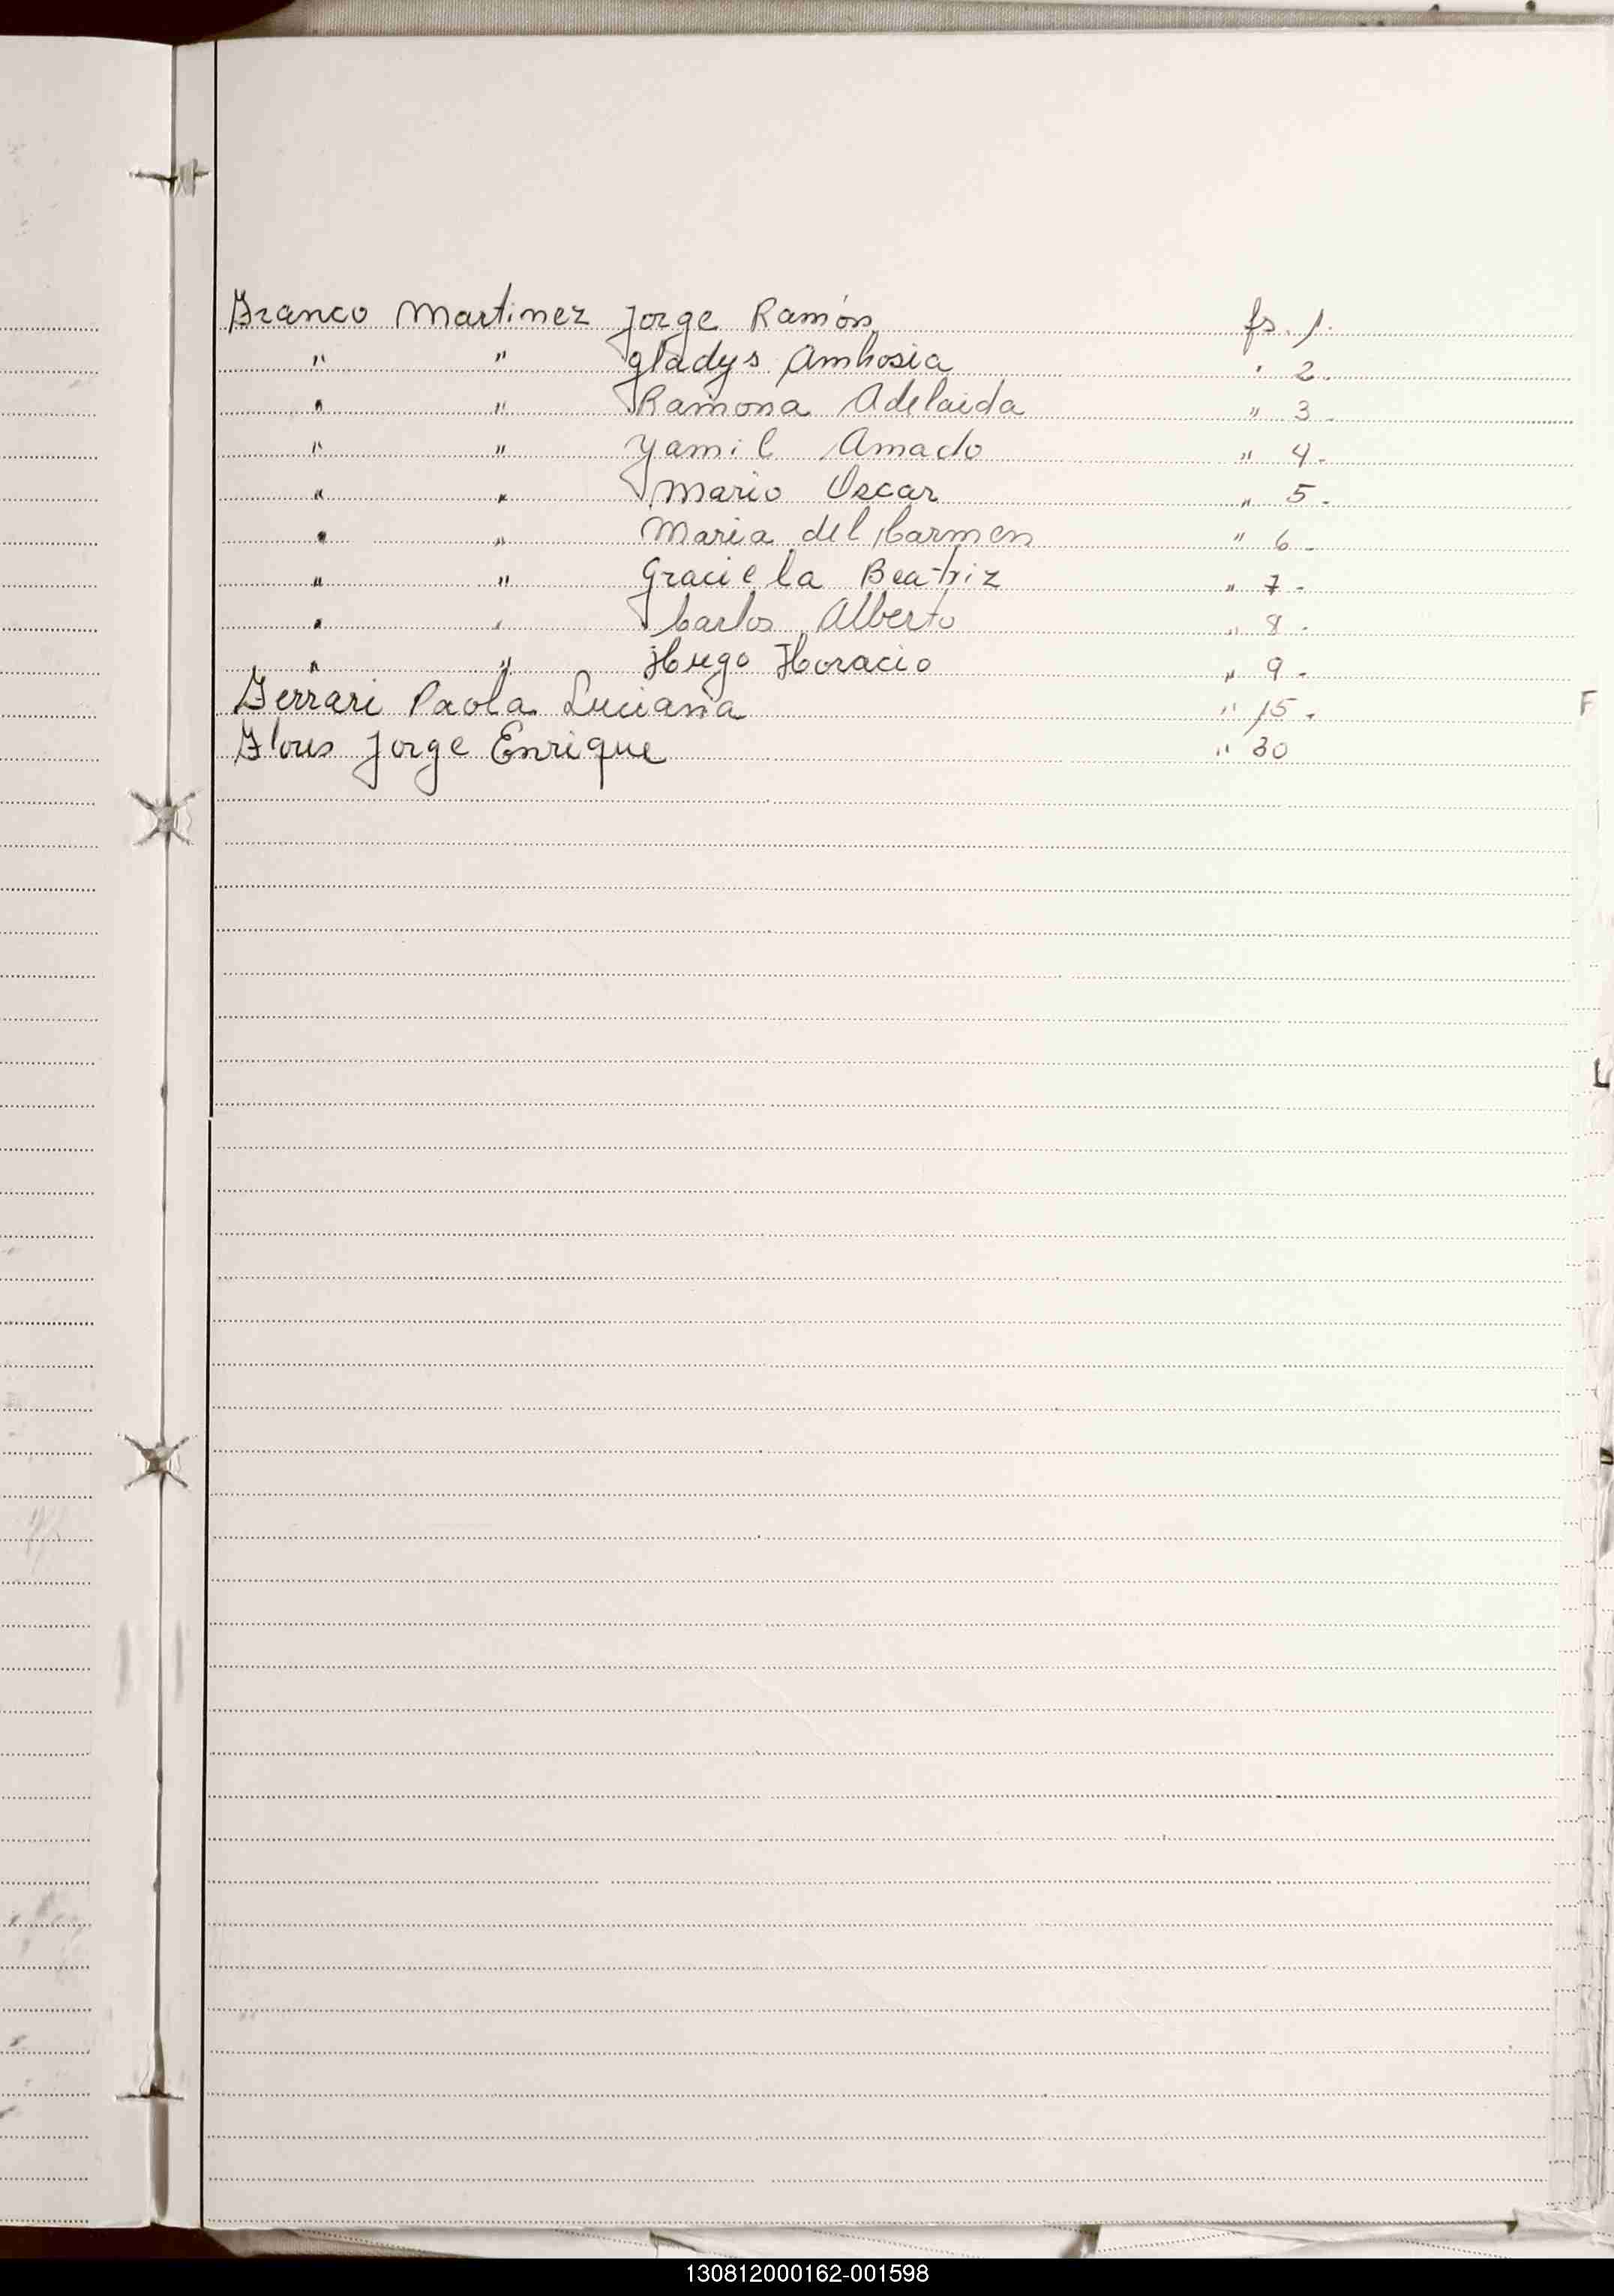 Franco Martinez Jorge Ramón fs. 1.
" " Gladys Ambrosia " 2.
" " Ramona Adelaida " 3.
" " Yamil Amado " 4.
" " Mario Oscar " 5.
" " Maria del Carmen " 6.
" " Graciela Beatriz " 7.
" " Carlos Alberto " 8.
" " Hugo Horacio " 9.
Ferrari Paola Luciana " 15.
F
Flores Jorge Enrique " 30
L
130812000162-001598